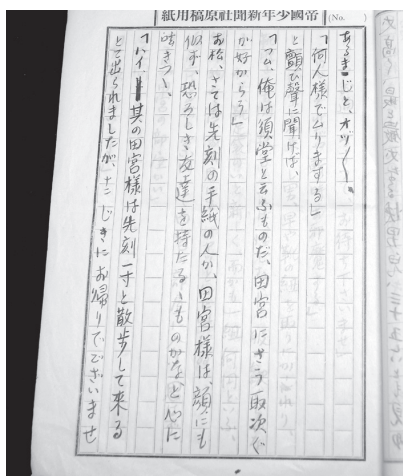 帝國少年新聞社原稿用紙
(No.　　)
あるまじと、オヅ〳〵、
「何人様でムりまする」
と顫ひ聲に聞けば、
「フム、俺は須堂と云ふものだ、田宮にさう取次ぐ
が好からう」
お松、さては先刻の手紙の人か、田宮様は、顔にも
似ず、恐ろしき友達を持たるゝものかなと心に
呟きつゝ、
「ハイ、其の田宮様は先刻一寸と散歩して来る
とて出られましたが、じきにお帰りでございませ